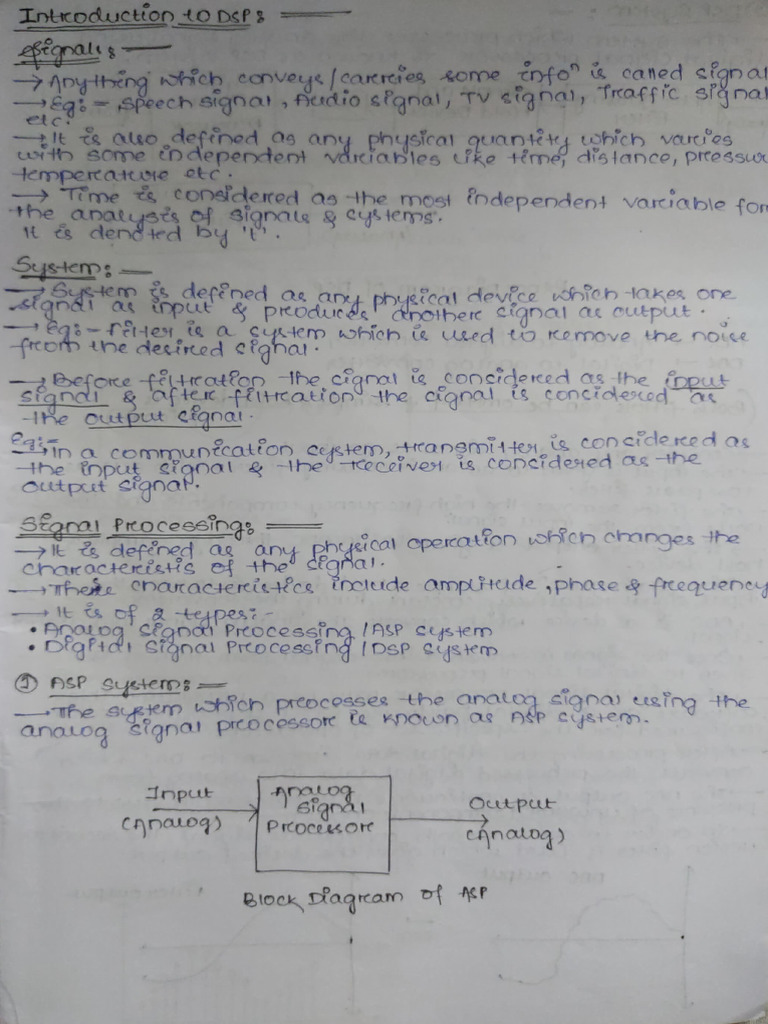 Introduction to DSP:
Signal:
→ Anything which conveys/carries some infoⁿ is called signal
→ Eg:- Speech signal, Audio signal, TV signal, Traffic signal
etc.
→ It is also defined as any physical quantity which varies
with some independent variables like time, distance, pressur
temperature etc.
→ Time is considered as the most independent variable for
the analysis of signals & systems.
It is denoted by 't'.
System:
→ System is defined as any physical device which takes one
signal as input & produces another signal as output.
→ Eg:- filter is a system which is used to remove the noise
from the desired signal.
→ Before filtration the signal is considered as the input
signal & after filtration the signal is considered as
the output signal.
Eg:-
→ In a communication system, transmitter is considered as
the input signal & the receiver is considered as the
output signal.
Signal Processing:
→ It is defined as any physical operation which changes the
characteristis of the signal.
→ These characteristics include amplitude, phase & frequency
→ It is of 2 types:-
• Analog Signal Processing / ASP system
• Digital Signal Processing / DSP system
① ASP System:
→ The system which processes the analog signal using the
analog signal processor is known as ASP system.
Input
(Analog)
Analog
Signal
Processor
Output
(Analog)
Block Diagram of ASP